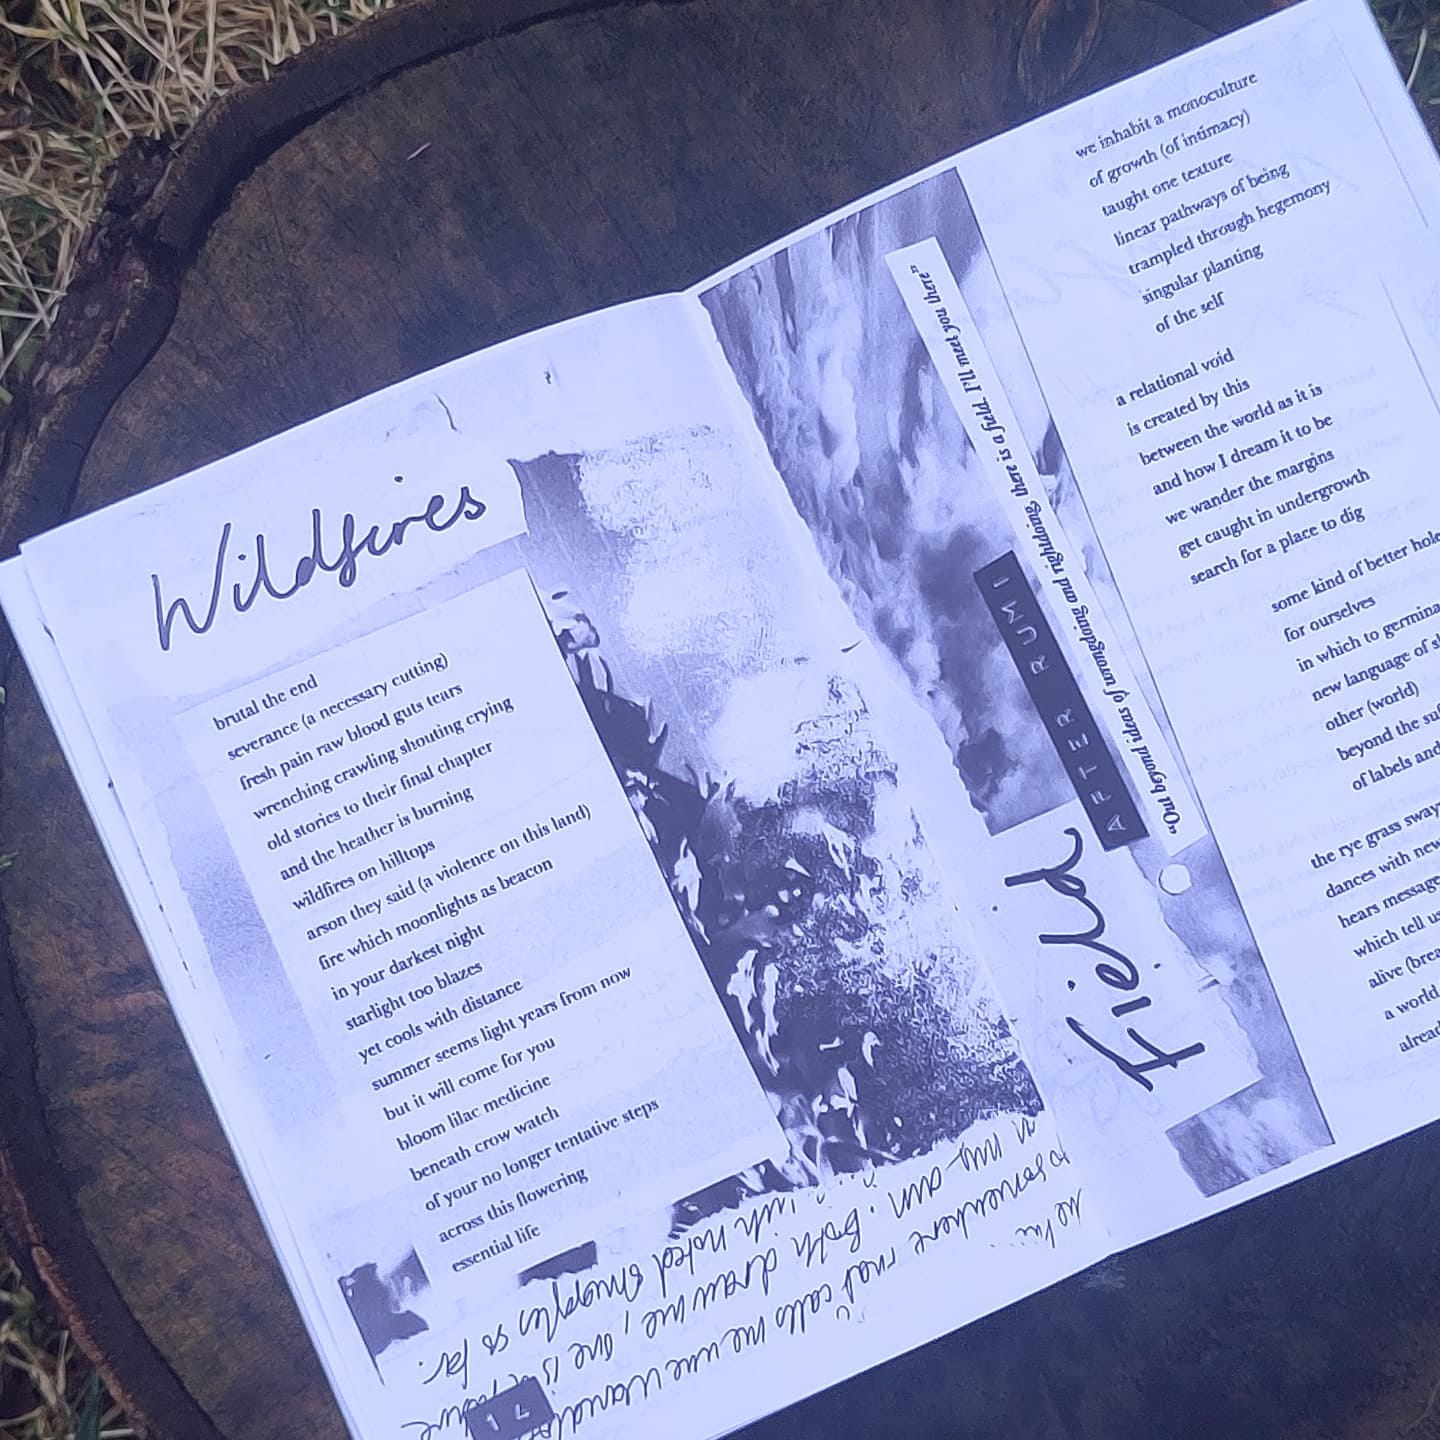 Wildfires
brutal the end
severance (a necessary cutting)
fresh pain raw blood guts tears
wrenching crawling shouting crying
old stories to their final chapter
and the heather is burning
wildfires on hilltops
arson they said (a violence on this land)
fire which moonlights as beacon
in your darkest night
starlight too blazes
yet cools with distance
summer seems light years from now
but it will come for you
bloom lilac medicine
beneath crow watch
of your no longer tentative steps
across this flowering
essential life
somewhere that calls me
my own. Both draw me, one is
with noted struggles so far.
17
Field
AFTER RUMI
"Out beyond ideas of wrongdoing and rightdoing, there is a field. I'll meet you there"
we inhabit a monoculture
of growth (of intimacy)
taught one texture
linear pathways of being
trampled through hegemony
singular planting
of the self
a relational void
is created by this
between the world as it is
and how I dream it to be
we wander the margins
get caught in undergrowth
search for a place to dig
some kind of better
for ourselves
in which to
new language of
other (world)
beyond the
of labels and
the rye grass
dances with
hears
which tell
alive
a world